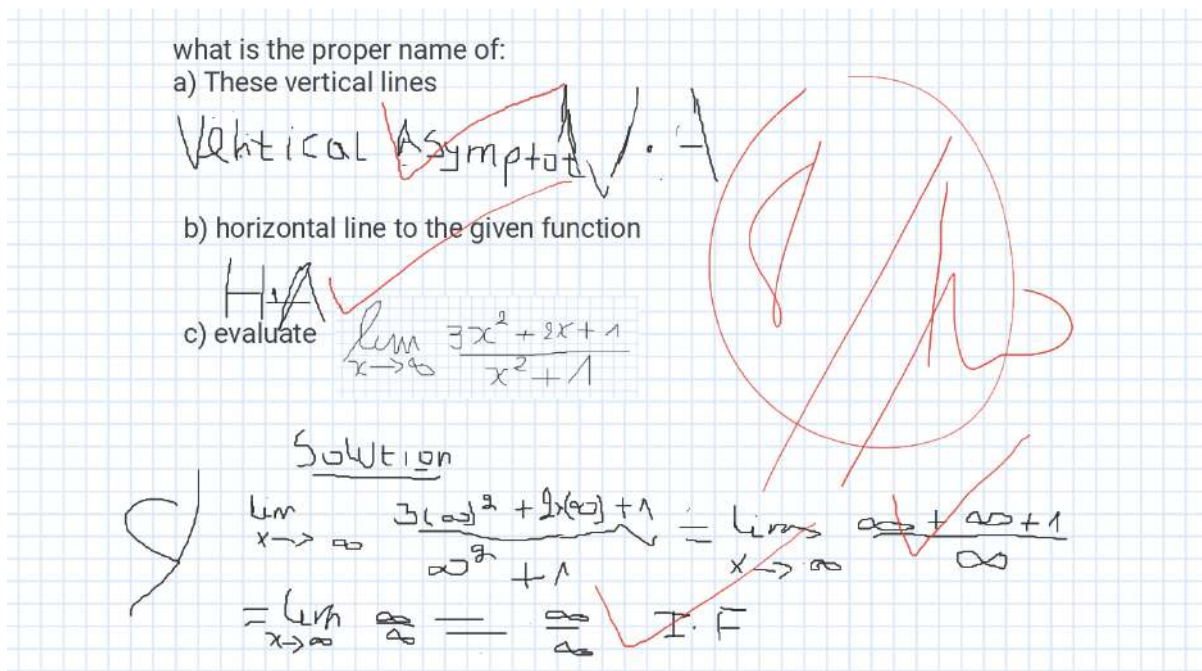 what is the proper name of:
a) These vertical lines
Vertical Asymptot V.A
b) horizontal line to the given function
H.A
c) evaluate lim x→∞ 3x² + 2x + 1 / x² + 1
Solution
lim x→∞ 3(∞)² + 2x(∞) + 1 / ∞² + 1 = lim x→∞ ∞ + ∞ + 1 / ∞
= lim x→∞ ∞/∞ = ∞/∞ I.F